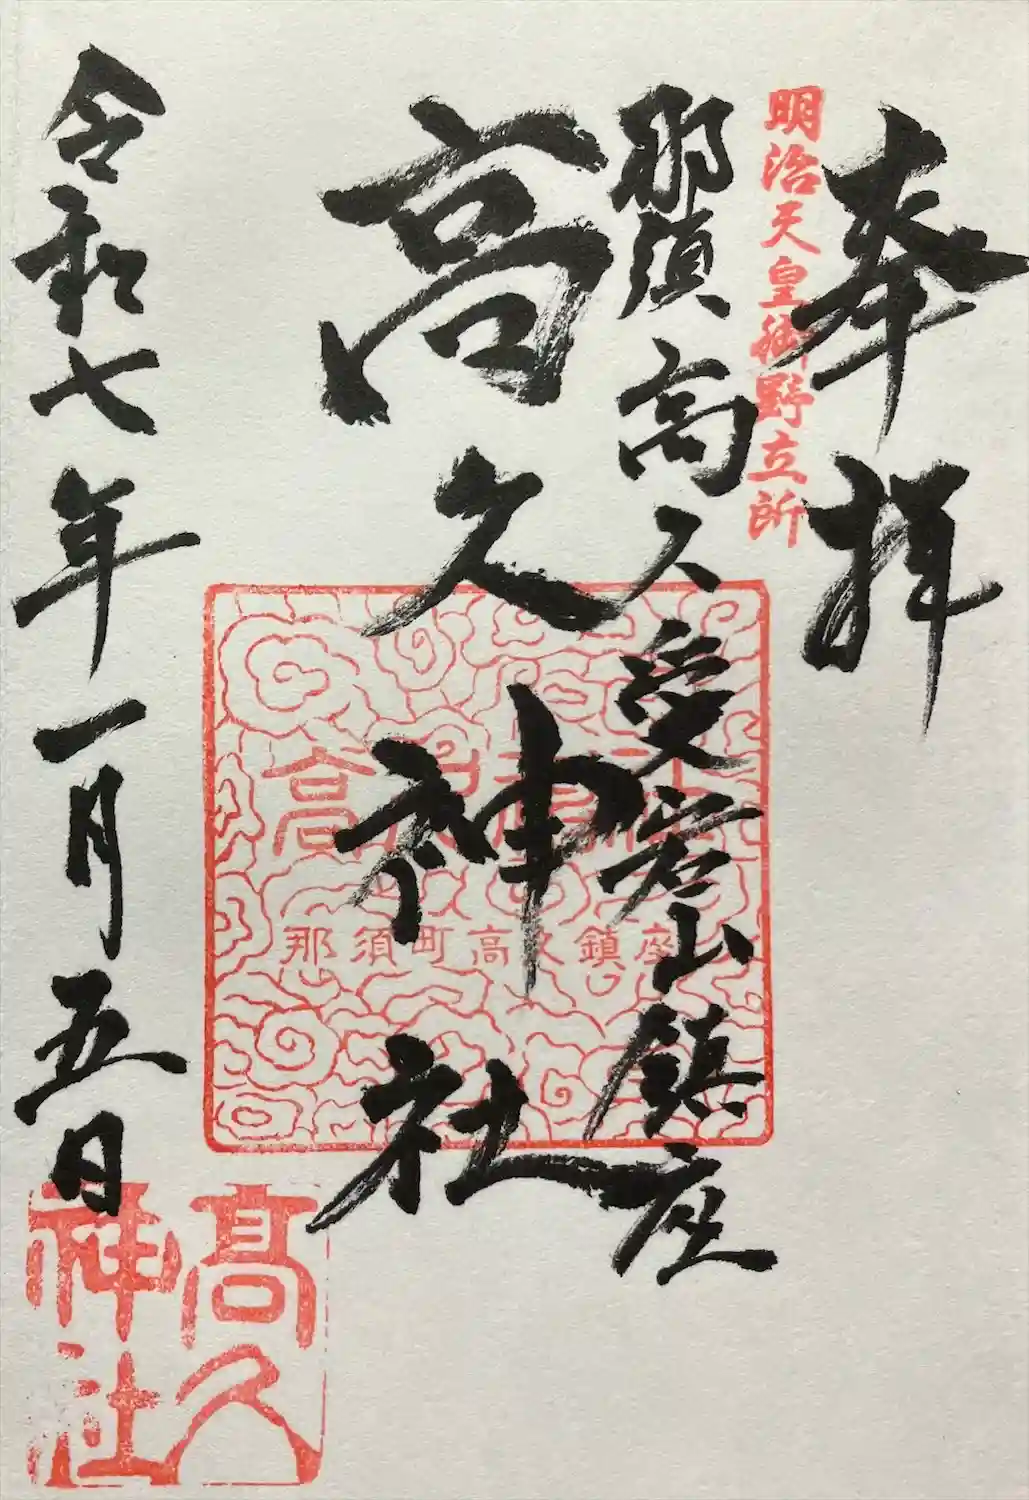 奉拝
明治天皇御野立所
那須高久愛宕山鎮座
高久神社
令和七年一月五日
高久神社
那須町高久鎮座
高久
神社